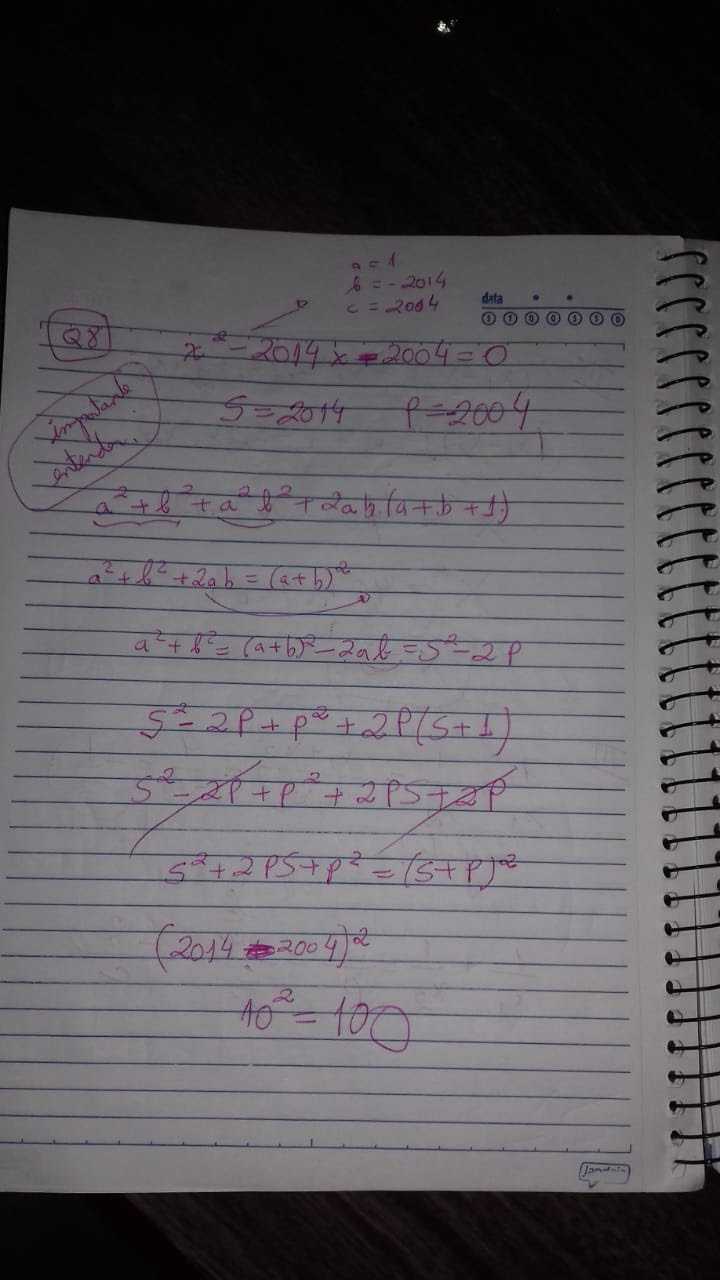 a = 1
b = - 2014
c = 2004
data
S T Q Q S S D
Q8
x² - 2014 x - 2004 = 0
importante
entender.
S = 2014 P = -2004
a² + b² + a² b² + 2ab (a + b + 1)
a² + b² + 2ab = (a + b)²
a² + b² = (a+b)² - 2ab = S² - 2P
S² - 2P + P² + 2P(S + 1)
S² - 2P + P² + 2PS + 2P
S² + 2PS + P² = (S + P)²
(2014 - 2004)²
10² = 100
jandaia